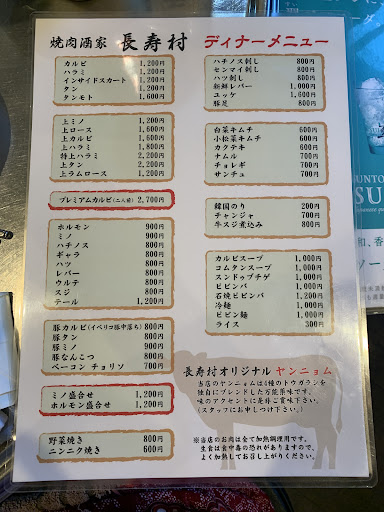 焼肉酒家 長寿村 ディナーメニュー
カルビ 1,200円
ハラミ 1,200円
インサイドスカート 1,200円
タン 1,200円
タンモト 1,600円
上ミノ 1,200円
上ロース 1,600円
上カルビ 1,600円
上ハラミ 1,800円
特上ハラミ 2,200円
上タン 2,200円
上ラムロース 1,200円
プレミアムカルビ(二人前) 2,700円
ホルモン 900円
ミノ 900円
ハチノス 800円
ギャラ 800円
ハツ 800円
レバー 800円
ウルテ 800円
スジ 800円
テール 1,200円
豚カルビ(イベリコ豚中落ち) 800円
豚タン 800円
豚ミノ 800円
豚なんこつ 800円
ベーコン チョリソ 700円
ミノ盛合せ 1,200円
ホルモン盛合せ 1,200円
野菜焼き 800円
ニンニク焼き 600円
ハチノス刺し 800円
センマイ刺し 800円
ハツ刺し 800円
新鮮レバー 1,000円
ユッケ 1,600円
豚足 800円
白菜キムチ 600円
小松菜キムチ 600円
カクテキ 600円
ナムル 700円
チョレギ 700円
サンチュ 700円
韓国のり 200円
チャンジャ 700円
牛スジ煮込み 800円
カルビスープ 1,000円
コムタンスープ 1,000円
スンドゥブチゲ 1,000円
ビビンバ 1,000円
石焼ビビンバ 1,200円
冷麺 1,000円
ビビン麺 1,000円
ライス 300円
長寿村オリジナル ヤンニョム
当店のヤンニョムは4種のトウガラシを
独自にブレンドした万能薬味です。
味のアクセントに是非ご賞味下さい。
(スタッフにお申しつけ下さい。)
※当店のお肉は全て加熱調理用です。
生食は食中毒の恐れがありますので、
よく加熱してお召し上がりください。
SUNTO
SU